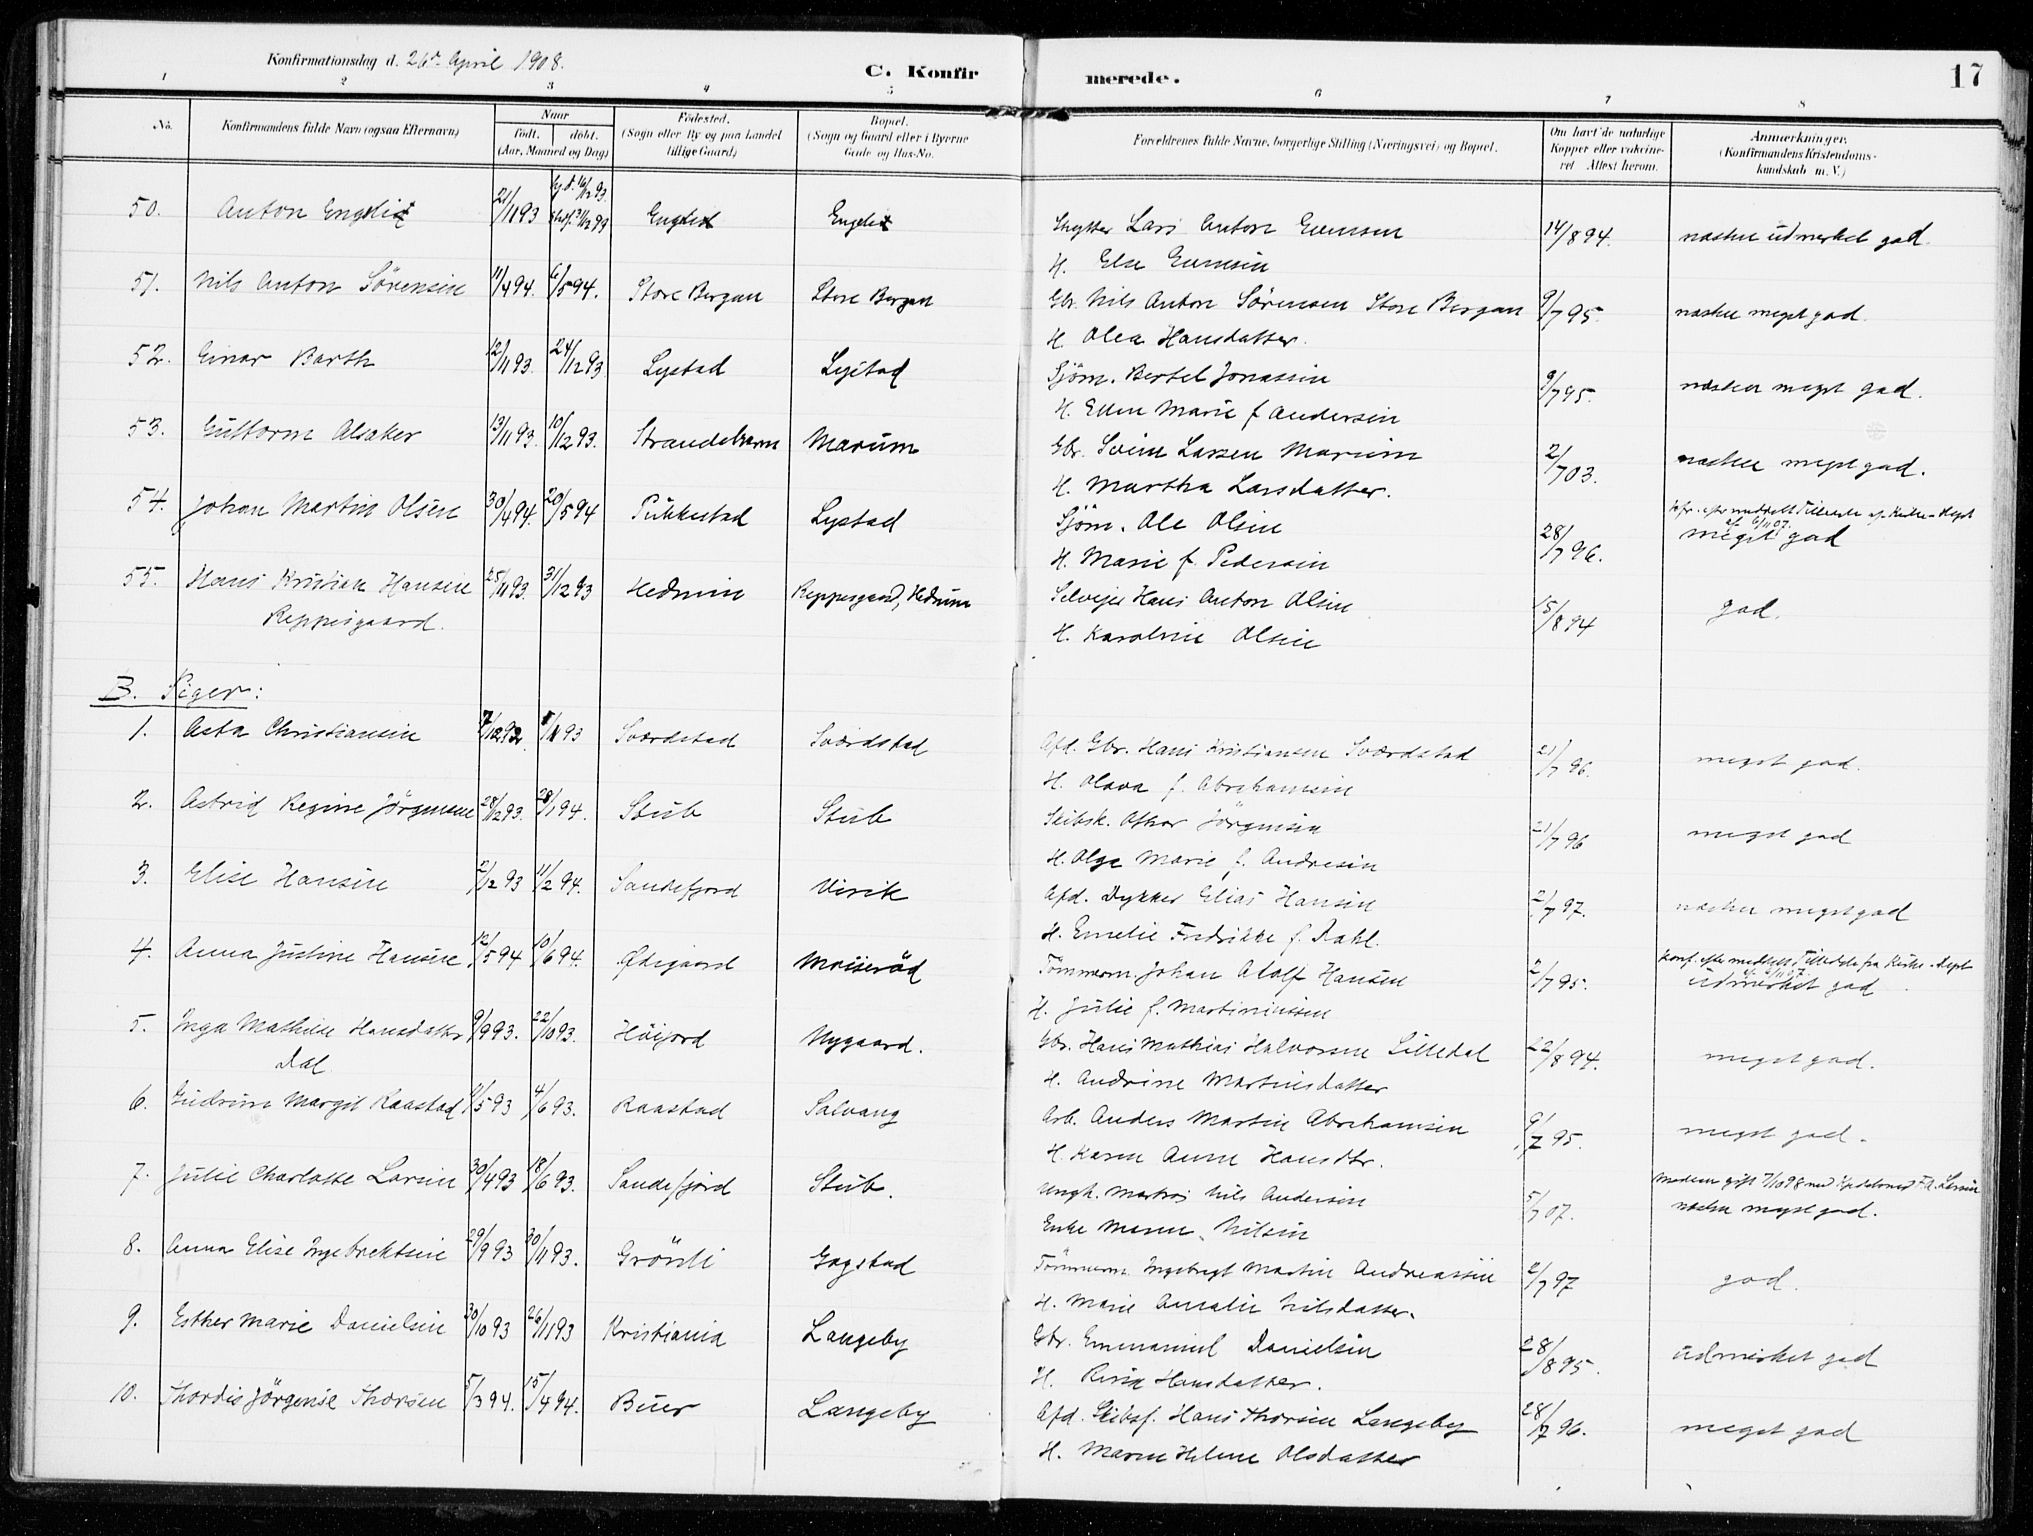 Konfirmationsdag d. 26de April 1908.
C. Konfirmerede.
17
1 2 3 4 5 6 7 8
No. Konfirmandens fulde Navn (ogsaa Efternavn) Naar født. døbt. (Aar, Maaned og Dag) Fødested. (Sogn eller By og paa Landet tillige Gaard) Bopæl. (Sogn og Gaard eller i Byerne Gade og Hus-No. Forældrenes fulde Navne, borgerlige Stilling (Næringsvei) og Bopæl. Om havt de naturlige Kopper eller vakcineret Attest herom. Anmerkninger. (Konfirmandens Kristendomskundskab m. V.)
50. Anton 21/11 93 Lars Anton Evensen 14/8 94. næsten udmerket god.
H. Else Evensen
51. Nils Anton Sörensen 11/4 94. 6/5 94. Store Bergan Store Bergan Gbr. Nils Anton Sörensen Store Bergan 9/7 95. næsten meget god.
H. Olea Hansdatter.
52. Einar Barth 12/11 93. 24/12 93. Lystad Lystad Sjöm. Bertel Jonassen 9/7 95. næsten meget god.
H. Ellen Marie f. Andersen
53. Guttorm Alsaker 13/11 93. 10/12 93. Strandebarm Marum Gbr. Svein Larsen Marum 2/7 03. næsten meget god.
H. Martha Larsdatter.
54. Johan Martin Olsen 30/4 94. 20/5 94 Pukkestad Lystad Sjöm. Ole Olsen 28/7 96. efter meddelt Tilladelse af Kirke-Dept af 6/11 07. meget god
H. Marie f. Pedersen
55. Hans Kristian Hansen 25/11 93. 31/12 93 Hedrum Reppesgaard, Hedrum Selveier Hans Anton Olsen 15/8 94 god.
Reppesgaard. H. Karoline Olsen
B. Piger:
1. Asta Christiansen Sværdstad Sværdstad Afd. Gbr. Hans Kristiansen Sværdstad 21/7 96. meget god.
H. Olava f. Abrahamsen
2. Astrid Regine Jörgensen 28/12 93. 28/1 94. Stub Stub Skibsk. Jörgensen 21/7 96 meget god
H. Olga Marie f. Andresen
3. Elise Hansen 2/12 93 11/2 94. Sandefjord Virik Afd. Dykker Elias Hansen 2/7 97. næsten meget god
H. Emelie Fredrikke f. Dahl.
4. Anna Justine Hansen 12/5 94 10/6 94. Ødegaard Moiseröd Tömmerm. Johan Adolf Hansen 2/7 95. Konf. efter meddelt Tilladelse fra Kirke-Dept udmerket god
H. Julie f. Martiniussen
5. Inga Mathilde Hansdatter 9/9 93. 22/10 93. Höijord Nygaard. Gbr. Hans Mathias Halvorsen Lilledal 22/8 94. meget god.
Dal. H. Andrine Martinsdatter
6. Gudrun Margit Raastad 4/6 93. Raastad Solvang Arb. Anders Martin Abrahamsen 9/7 95. meget god.
H. Karen Anne Hansdtr.
7. Julie Charlotte Larsen 30/4 93 18/6 93. Sandefjord Stub. Ungk. Matros Nils Andersen 5/7 07. Moderen gift 7/10 98 med Larsen næsten meget god.
Enke Maren Nilsen
8. Anna Elise Ingebrektsen 29/9 93 Grönli Gogstad Tömmerm. Ingebregt Martin Andreassen 2/7 97 god.
H. Marie Amalie Nilsdatter.
9. Esther Marie Danielsen 30/10 93 26/11 93 Kristiania Langeby Gbr. Emmanuel Danielsen 28/8 95. udmerket god
H. Hansdatter.
10. Thordis Jörgense Thorsen 5/3 94. 15/4 94. Buer Langeby Afd. Skibsf. Hans Thorsen Langeby 28/7 96. meget god
H. Maren Helene Olsdatter